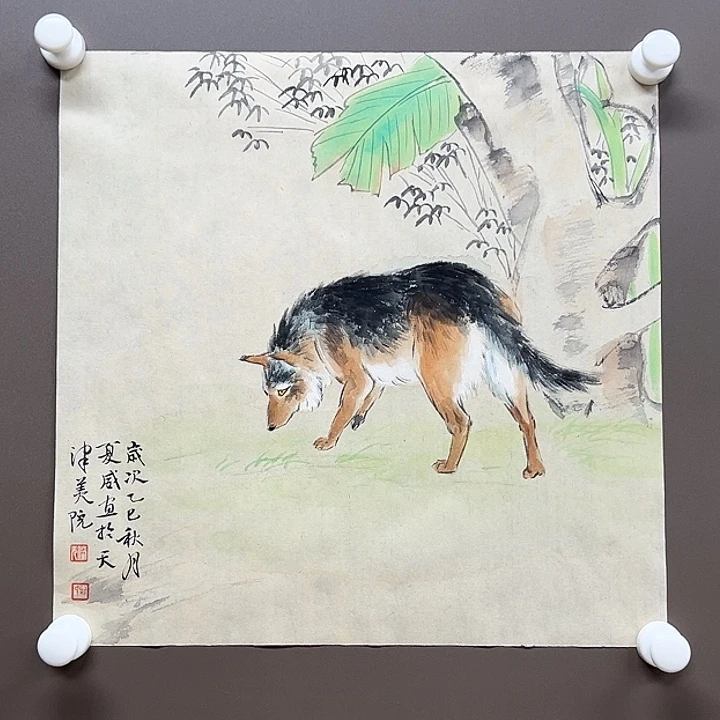 歲次乙巳秋月
夏咸画於天
津美院